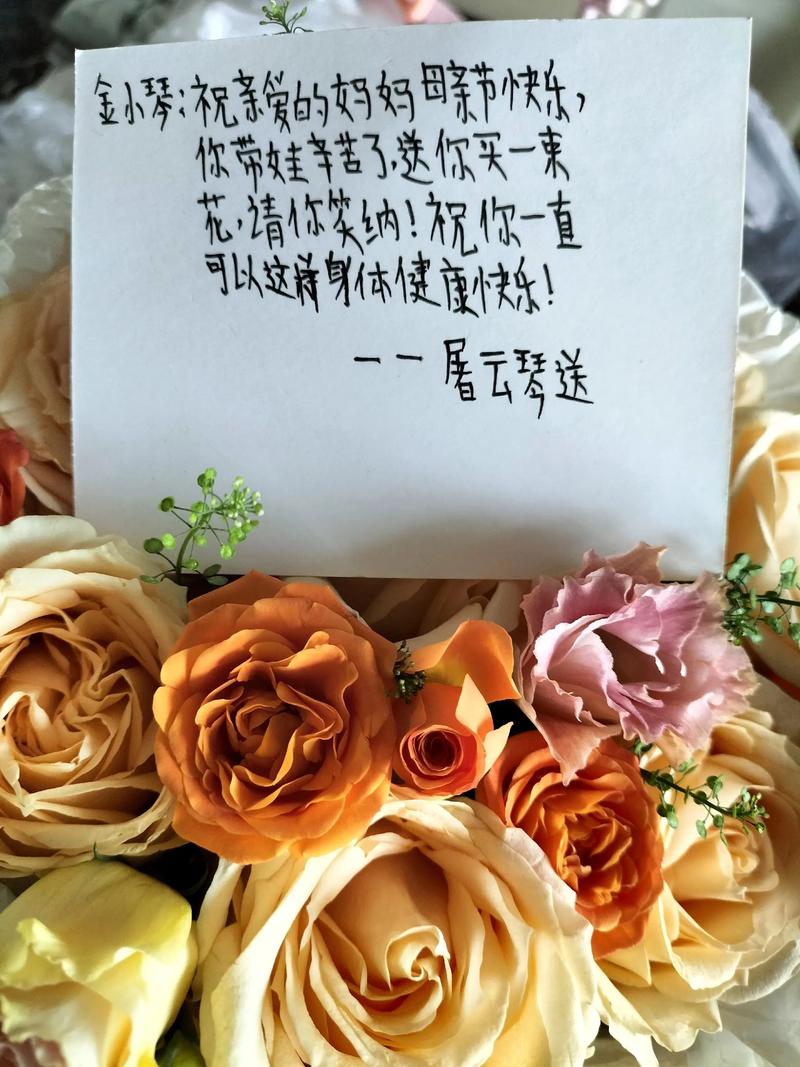 金小琴:祝亲爱的妈妈母亲节快乐,
你带娃辛苦了,送你买一束
花,请你笑纳!祝你一直
可以这样身体健康快乐!
——屠云琴送